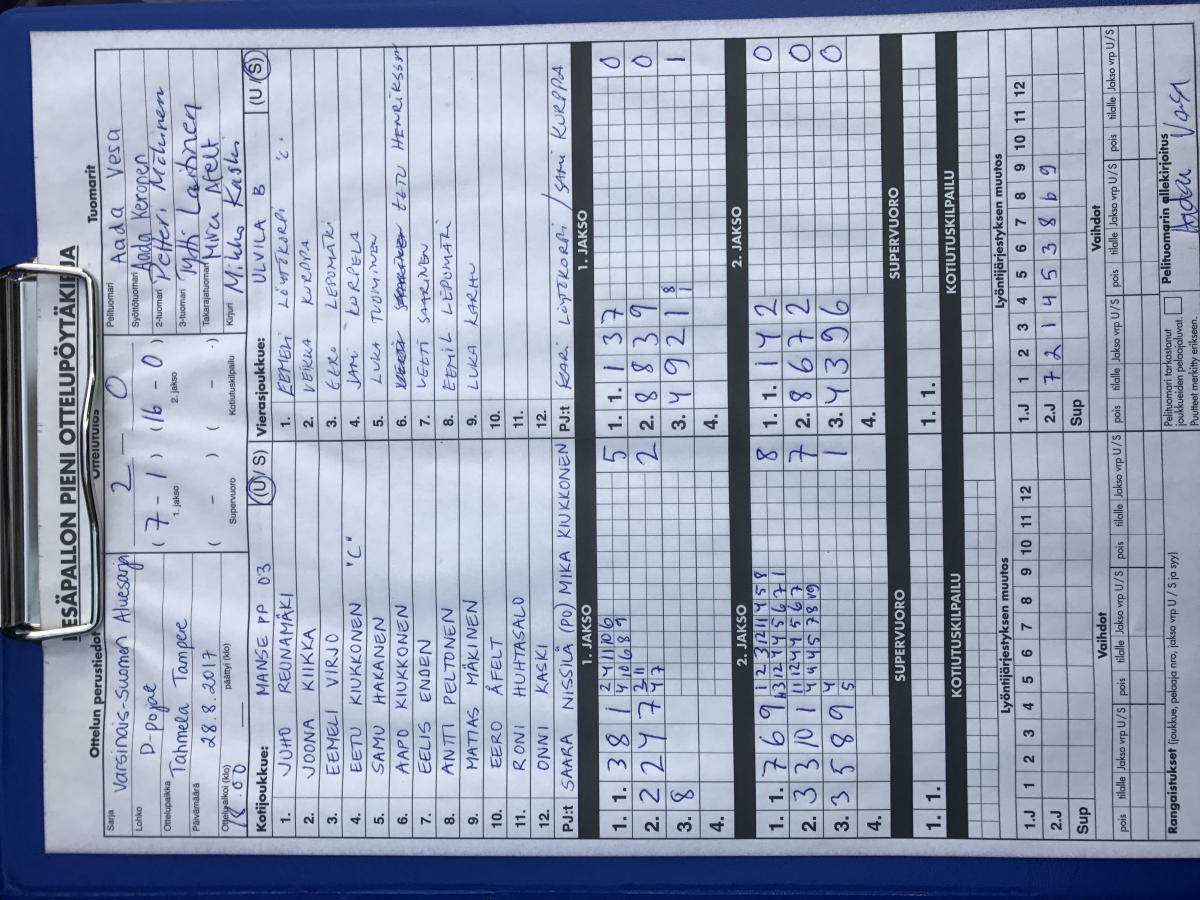 PESÄPALLON PIENI OTTELUPÖYTÄKIRJA
Ottelun perustiedot
Sarja Varsinais-Suomen Aluesarja
Lohko D-pojat
Ottelupaikka Tahmela Tampere
Päivämäärä 28.8.2017
Ottelu alkoi (klo) 18.00 päättyi (klo)
Ottelutulos
2 — 0
( 7 - 1 ) ( 16 - 0 )
1. jakso 2. jakso
( - ) ( - )
Supervuoro Kotiutuskilpailu
Tuomarit
Pelituomari Aada Vesa
Syöttötuomari Aada Keronen
2-tuomari Petteri Mäkinen
3-tuomari Tytti Laitinen
Takarajatuomari Mira Åfelt
Kirjuri Mikko Kaski
Kotijoukkue: MANSE PP 03 (U / S)
1. JUHO REUNAMÄKI
2. JOONA KIIKKA
3. EEMELI VIRJO
4. EETU KIUKKONEN "C"
5. SAMU HAKANEN
6. AAPO KIUKKONEN
7. EELIS ENDEN
8. ANTTI PELTONEN
9. MATIAS MÄKINEN
10. EERO ÅFELT
11. RONI HUHTASALO
12. ONNI KASKI
PJ:t SAARA NISSILÄ (PO) MIKA KIUKKONEN
Vierasjoukkue: ULVILA B (U / S)
1. EEMELI LÖYTÖKORPI "C"
2. VEIKKA KURPPA
3. EERO LEPOMÄKI
4. JANI KORPELA
5. LUKA TUOMINEN
6. EETU HENRIKSSON
7. VELTI SAARINEN
8. EEMIL LEPOMÄKI
9. LUKA KARHU
10.
11.
12.
PJ:t KARI LÖYTÖKORPI / SAMI KURPPA
1. JAKSO
1. 1. 3 8 1 2 4 11 10 6 5
4 10 6 8 9
2. 2 2 4 7 3 11 2
4 7
3. 8
4.
2. JAKSO
1. 1. 7 6 9 1 2 3 12 11 4 5 8 8
11 3 12 4 4 5 6 7 1
2. 3 3 10 1 11 12 4 4 5 6 7 7
4 4 4 5 7 8 1 9
3. 3 5 8 9 4 1
5
4.
SUPERVUORO
1. 1.
KOTIUTUSKILPAILU
1. JAKSO
1. 1. 1 3 7 0
2. 8 8 3 9 0
3. 4 9 2 1 8 1
1
4.
2. JAKSO
1. 1. 1 4 2 0
2. 8 6 7 2 0
3. 4 3 9 6 0
4.
SUPERVUORO
1. 1.
KOTIUTUSKILPAILU
Lyöntijärjestyksen muutos
1.J 1 2 3 4 5 6 7 8 9 10 11 12
2.J
Sup
Vaihdot
pois tilalle Jakso vrp U/S pois tilalle Jakso vrp U/S pois tilalle Jakso vrp U/S
Lyöntijärjestyksen muutos
1.J 1 2 3 4 5 6 7 8 9 10 11 12
2.J 7 2 1 4 5 3 8 6 9
Sup
Vaihdot
pois tilalle Jakso vrp U/S pois tilalle Jakso vrp U/S pois tilalle Jakso vrp U/S
Rangaistukset (joukkue, pelaaja nro, jakso vrp, U / S ja syy)
Pelituomari tarkastanut
joukkueiden pelaajaluvat.
Puutteet merkitty erikseen.
Pelituomarin allekirjoitus
Aada Vesa